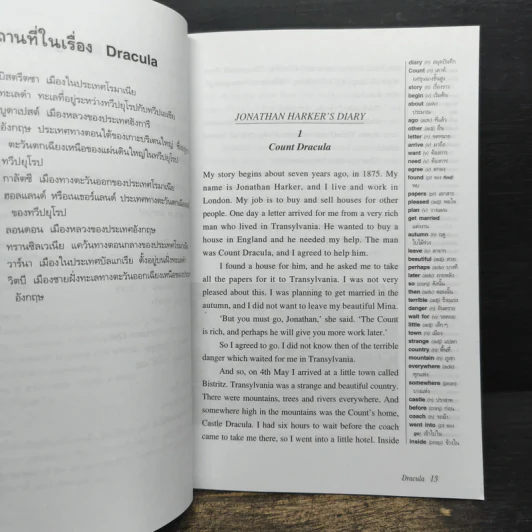 านที่ในเรื่อง Dracula
บิสตริตซา เมืองในประเทศโรมาเนีย
ทะเลดำ ทะเลที่อยู่ระหว่างทวีปยุโรปกับทวีปเอเชีย
บูดาเปสต์ เมืองหลวงของประเทศฮังการี
อังกฤษ ประเทศทางตอนใต้ของเกาะบริเตนใหญ่
ตะวันตกเฉียงเหนือของแผ่นดินใหญ่ในทวีปยุโรป
ทวีปยุโรป
กาลัตซี เมืองทางตะวันออกของประเทศโรมาเนีย
ฮอลแลนด์ หรือเนเธอร์แลนด์ ประเทศทางตะวันตก
ของทวีปยุโรป
ลอนดอน เมืองหลวงของประเทศอังกฤษ
ทรานซิลเวเนีย แคว้นทางตอนกลางของประเทศโรมาเนีย
วาร์นา เมืองในประเทศบัลแกเรีย
วิตบี เมืองชายฝั่งทะเลทางตะวันออกเฉียงเหนือของประเทศ
อังกฤษ
JONATHAN HARKER'S DIARY
1
Count Dracula
My story begins about seven years ago, in 1875. My
name is Jonathan Harker, and I live and work in
London. My job is to buy and sell houses for other
people. One day a letter arrived for me from a very rich
man who lived in Transylvania. He wanted to buy a
house in England and he needed my help. The man
was Count Dracula, and I agreed to help him.
I found a house for him, and he asked me to take
all the papers for it to Transylvania. I was not very
pleased about this. I was planning to get married in the
autumn, and I did not want to leave my beautiful Mina.
'But you must go, Jonathan,' she said. 'The Count
is rich, and perhaps he will give you more work later.'
So I agreed to go. I did not know then of the terrible
danger which waited for me in Transylvania.
And so, on 4th May I arrived at a little town called
Bistritz. Transylvania was a strange and beautiful country.
There were mountains, trees and rivers everywhere. And
somewhere high in the mountains was the Count's home,
Castle Dracula. I had six hours to wait before the coach
came to take me there, so I went into a little hotel. Inside
diary (n) สมุดบันทึก
Count (n)
story (n) เรื่องราว
begin (v) เริ่มต้น
about (adv)
ประมาณ
ago (adv) ที่แล้ว
other (adj) อื่น
letter (n) จดหมาย
arrive (v) มาถึง
want (v) ต้องการ
need (v) ต้องการ
agree (v) ตกลง
found (v)
papers (n) เอกสาร
pleased (adj) พอใจ
plan (v) วางแผน
get married
แต่งงาน
autumn (n) ฤดู
ใบไม้ร่วง
leave (v)
beautiful (adj) สวย
perhaps (adv) บางที
later (adv)
so (conj) ดังนั้น
then (adv) ตอนนั้น
terrible (adj)
danger (n) อันตราย
wait for (v) รอคอย
little (adj) เล็กๆ
town (n) เมือง
strange (adj) แปลก
country (n)
mountain (n) ภูเขา
everywhere (adv)
ทุกแห่ง
somewhere (pron)
castle (n) ปราสาท
before (conj) ก่อน
coach (n) รถม้า
went into
เข้าไปใน
inside (prep) ข้างใน
Dracula 13